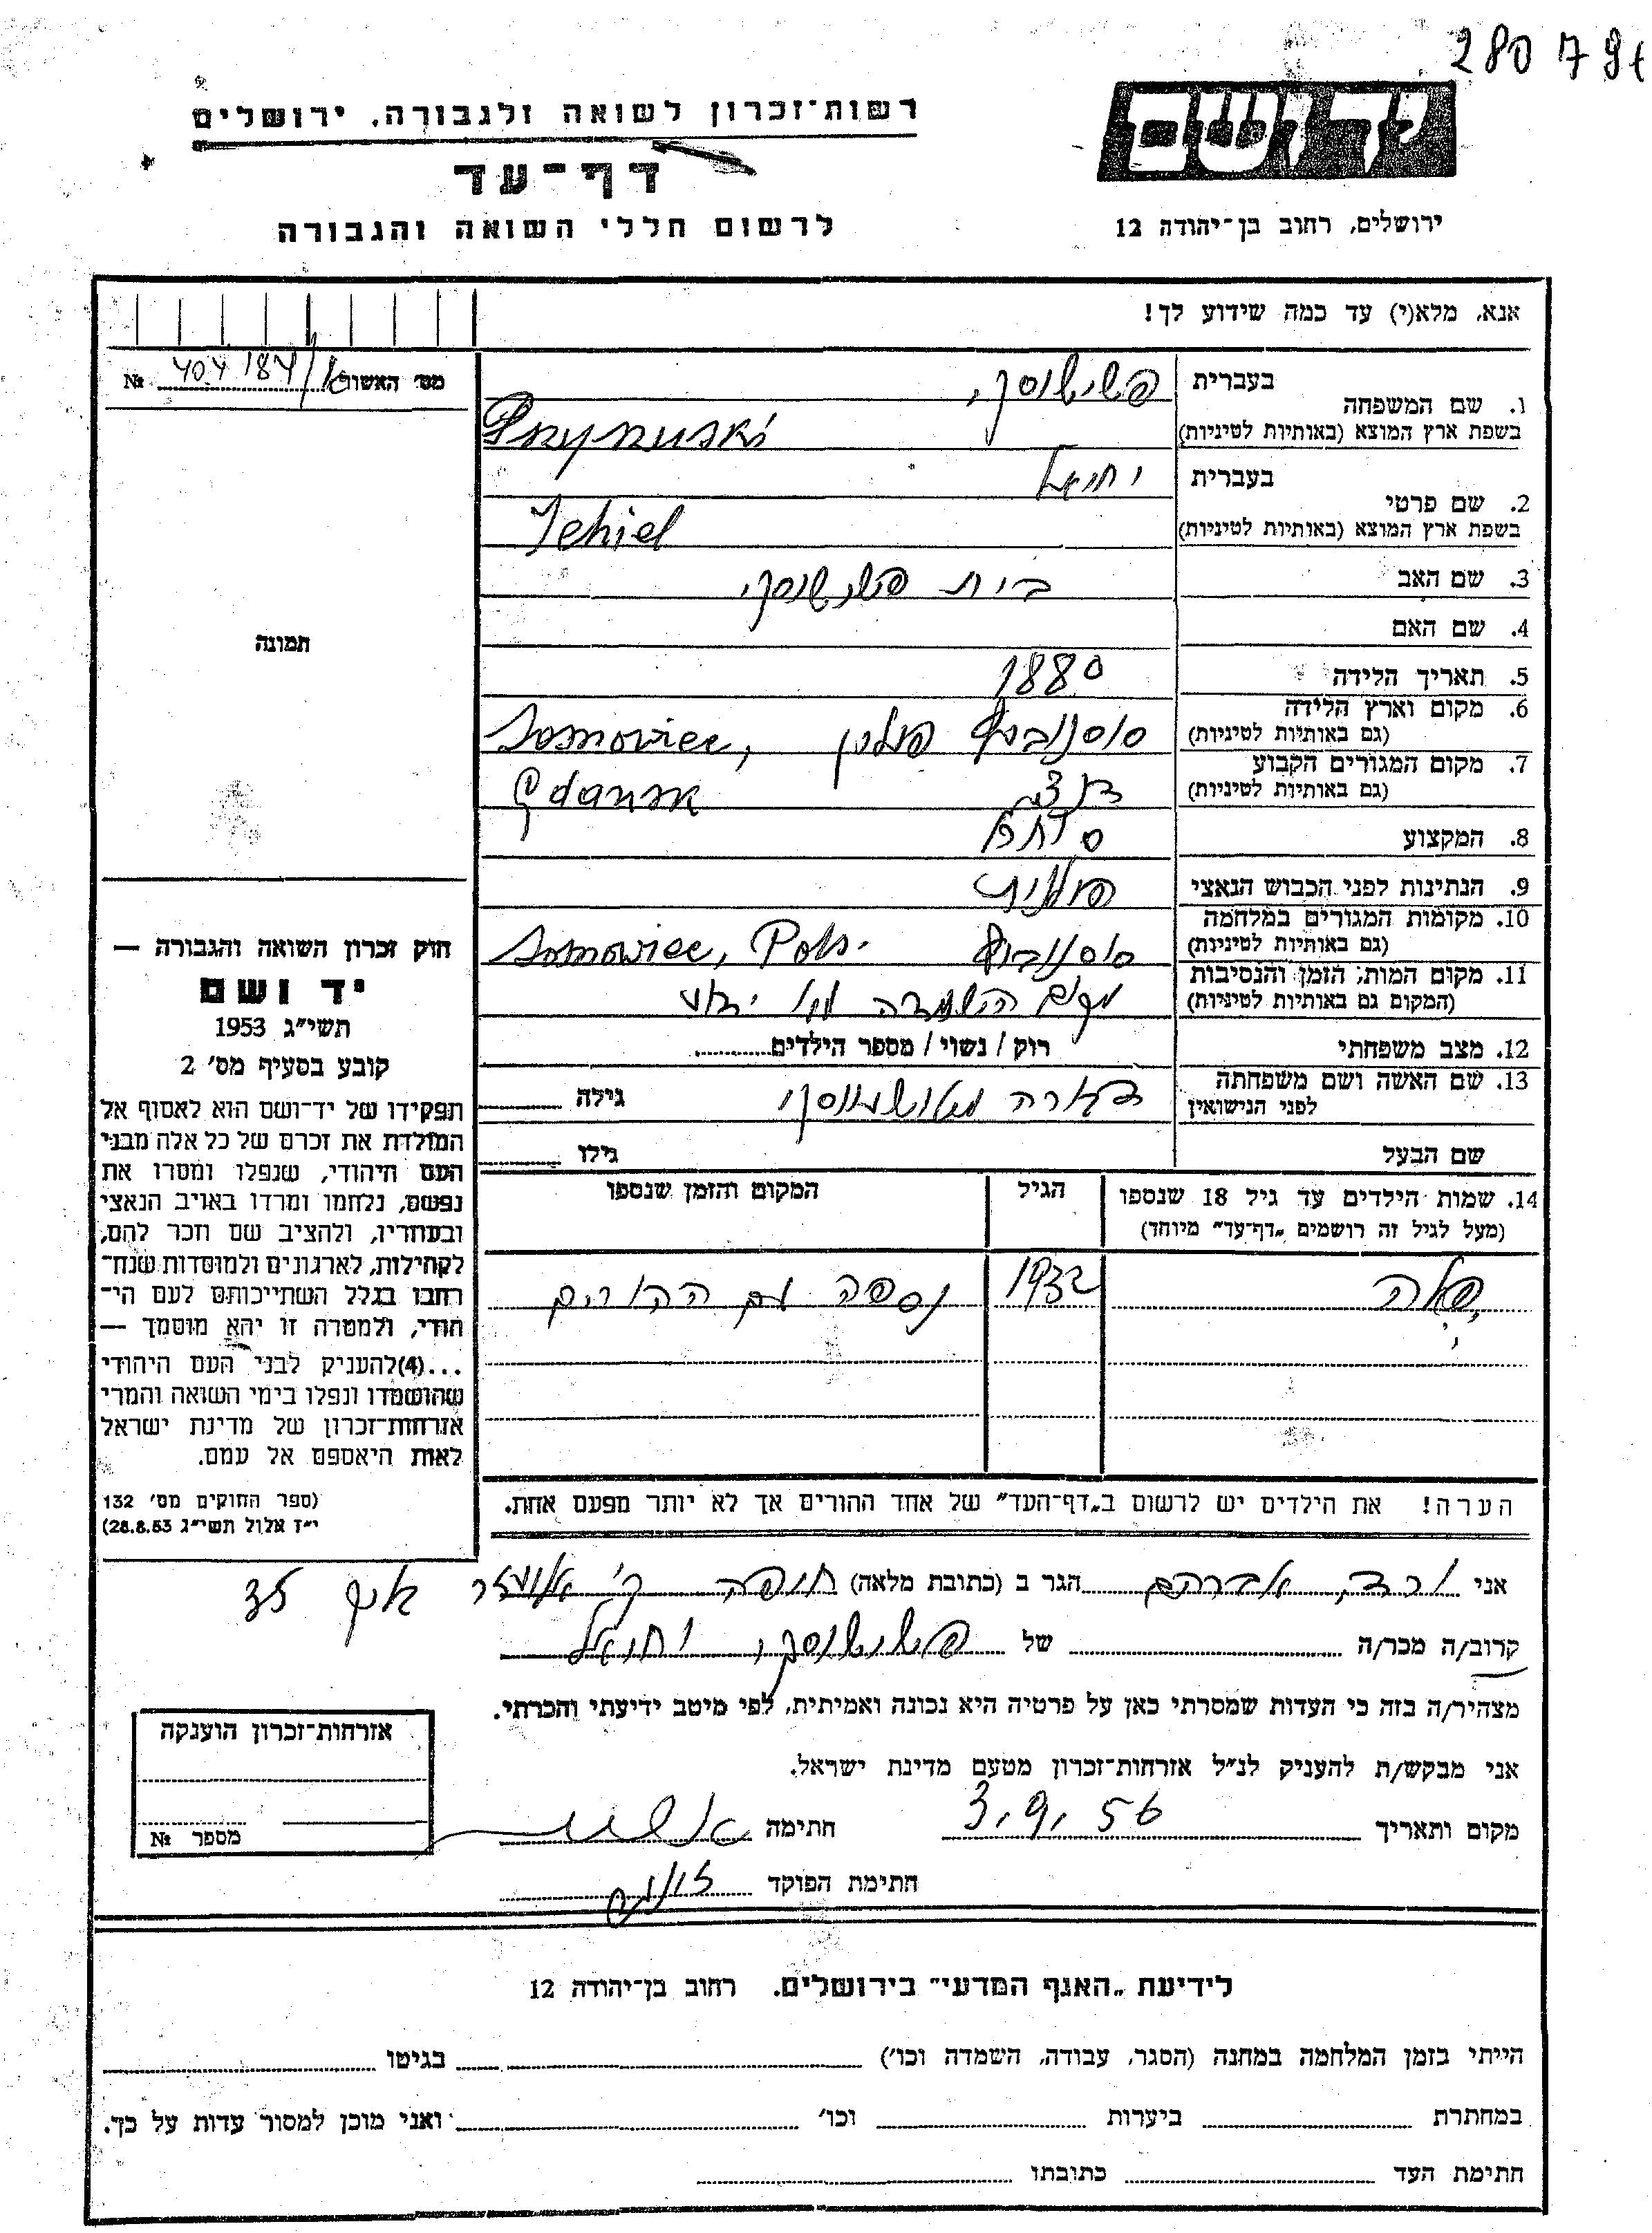 280 79t
יד ושם
רשות־זכרון לשואה ולגבורה, ירושלים
דף־עד
לרשום חללי השואה והגבורה
ירושלים, רחוב בן־יהודה 12
אנא, מלא(י) עד כמה שידוע לך!
מס' האשור № 404 184/
1. שם המשפחה
בעברית
בשפת ארץ המוצא (באותיות לטיניות)
2. שם פרטי
בעברית יחיאל
בשפת ארץ המוצא (באותיות לטיניות) Jehiel
3. שם האב בית
4. שם האם
5. תאריך הלידה 1880
6. מקום וארץ הלידה
(גם באותיות לטיניות) סוסנוביץ פולין Sosnowiec,
7. מקום המגורים הקבוע
(גם באותיות לטיניות) דנציג Gdansk
8. המקצוע סוחר
9. הנתינות לפני הכבוש הנאצי פולנית
10. מקומות המגורים במלחמה
(גם באותיות לטיניות) סוסנוביץ Sosnowiec, Pols.
11. מקום המות, הזמן והנסיבות
(המקום גם באותיות לטיניות) מקום השמדה לא ידוע
12. מצב משפחתי רוק / נשוי / מספר הילדים
13. שם האשה ושם משפחתה
לפני הנישואין גילה
שם הבעל גילו
14. שמות הילדים עד גיל 18 שנספו
(מעל לגיל זה רושמים „דף־עד" מיוחד)
הגיל
המקום והזמן שנספו
פאלה 1932 נספה עם ההורים
הערה! את הילדים יש לרשום ב„דף־העד" של אחד ההורים אך לא יותר מפעם אחת.
תמונה
חוק זכרון השואה והגבורה —
יד ושם
תשי"ג 1953
קובע בסעיף מס' 2
תפקידו של יד־ושם הוא לאסוף אל
המולדת את זכרם של כל אלה מבני
העם היהודי, שנפלו ומסרו את
נפשם, נלחמו ומרדו באויב הנאצי
ובעוזריו, ולהציב שם וזכר להם,
לקהילות, לארגונים ולמוסדות שנח־
רחבו בגלל השתייכותם לעם הי־
הודי, ולמטרה זו יהא מוסמך —
...(4) להעניק לבני העם היהודי
שהושמדו ונפלו בימי השואה והמרי
אזרחות־זכרון של מדינת ישראל
לאות היאספם אל עמם.
(ספר החוקים מס' 132
י"ז אלול תשי"ג 28.8.53)
אני אברהם הגר ב (כתובת מלאה) חיפה ק'
קרוב/ה מכר/ה של יחיאל
מצהיר/ה בזה כי העדות שמסרתי כאן על פרטיה היא נכונה ואמיתית, לפי מיטב ידיעתי והכרתי.
אני מבקש/ת להעניק לנ"ל אזרחות־זכרון מטעם מדינת ישראל.
מקום ותאריך 3.9.56 חתימה
חתימת הפוקד
אזרחות־זכרון הוענקה
מספר №
לידיעת „האגף המדעי" בירושלים. רחוב בן־יהודה 12
הייתי בזמן המלחמה במחנה (הסגר, עבודה, השמדה וכו') בגיטו
במחתרת ביערות וכו' ואני מוכן למסור עדות על כך.
חתימת העד כתובתו